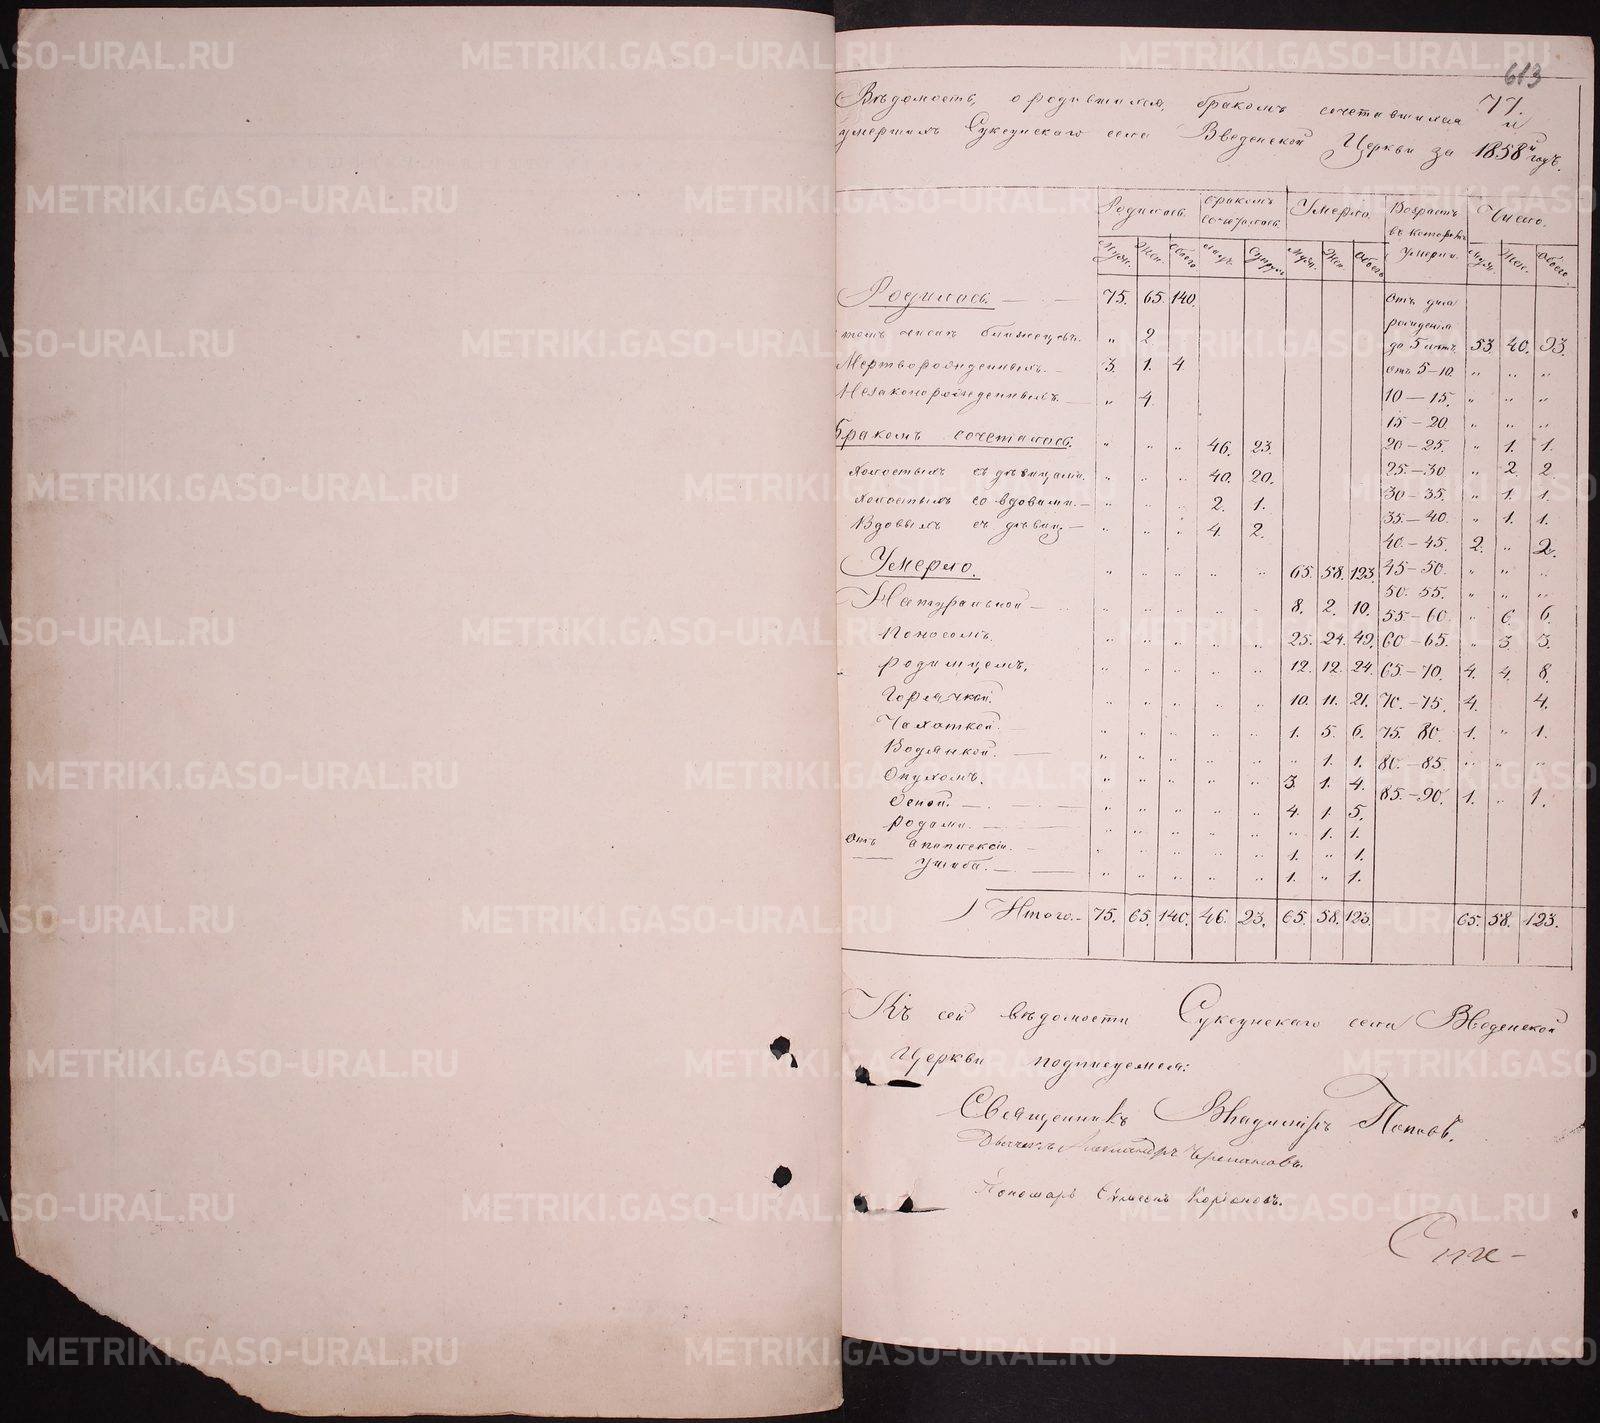 613
77.
Вѣдомость, о родившихся, бракомъ сочетавшихся и
умершихъ Суксунскаго села Введенской Церкви за 1858й годъ.
Родилось. Бракомъ сочеталось. Умерло. Возрастъ въ которомъ умерли. Число.
Муж. Жен. Обоего Супруж. Муж. Жен. Обоего Муж. Жен. Обоего.
Родилось. — 75. 65. 140. отъ дня рожденія до 5 лѣтъ. 53. 40. 93.
томъ числѣ близнецовъ. „ 2
Мертворожденныхъ. — 3. 1. 4. отъ 5–10. „ „ „
Незаконорожденныхъ. — „ 4. 10 — 15. „ „ „
15 — 20. „ „ „
Бракомъ сочеталось. „ „ „ 46. 23. 20 — 25. „ 1. 1.
холостыхъ съ дѣвицами. „ „ „ 40. 20. 25. — 30 „ 2. 2.
холостыхъ со вдовами. — „ „ „ 2. 1. 30 — 35. „ 1. 1.
Вдовыхъ съ дѣвиц. — „ „ „ 4. 2. 35. — 40. „ 1. 1.
40. — 45. 2. „ 2.
Умерло. „ „ „ „ „ 65. 58. 123. 45 — 50. „ „ „
50. 55. „ „ „
Натуральной — „ „ „ „ „ 8. 2. 10. 55 — 60. „ 6. 6.
Поносомъ. „ „ „ „ „ 25. 24. 49. 60 — 65. „ 3. 3.
родимцемъ. „ „ „ „ „ 12. 12. 24. 65 — 70. 4. 4. 8.
Горячкой. „ „ „ „ „ 10. 11. 21. 70. — 75. 4. 4.
Чахоткой. „ „ „ „ „ 1. 5. 6. 75. 80. 1. „ 1.
Водянкой. — „ „ „ „ „ „ 1. 1. 80. — 85. „ „ „
Опухолъ. „ „ „ „ „ 3. 1. 4. 85. — 90. 1. „ 1.
Оспой. — „ „ „ „ „ 4. 1. 5.
родами. — „ „ „ „ „ „ 1. 1.
Отъ „ „ „ „ „ 1. „ 1.
— ушиба. — „ „ „ „ „ 1. „ 1.
Итого. — 75. 65. 140. 46. 23. 65. 58. 123. 65. 58. 123.
Къ сей вѣдомости Суксунскаго села Введенской
Церкви подписуемся:
Священникъ Владиміръ Поповъ.
Дьячекъ Александръ Черепановъ.
Пономарь Сѵмеонъ
METRIKI.GASO-URAL.RU